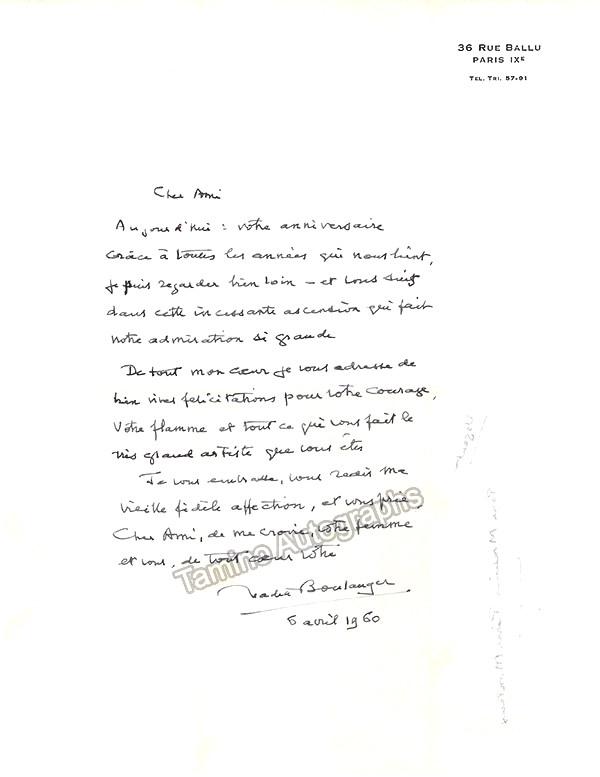 36 RUE BALLU
PARIS IXE
TEL. TRI. 57-91
Cher Ami
Aujourd'hui : votre anniversaire
Grâce à toutes les années qui nous lient,
je puis regarder bien loin – et vous suis
dans cette incessante ascension qui fait
notre admiration si grande
De tout mon cœur je vous adresse de
bien vives félicitations pour votre courage,
votre flamme et tout ce qui vous fait le
très grand artiste que vous êtes
Je vous embrasse, vous redis ma
vieille fidèle affection, et vous prie,
Cher Ami, de me croire, votre femme
et vous, de tout cœur vôtre
Tamino Autographs
Nadia Boulanger
6 avril 1960